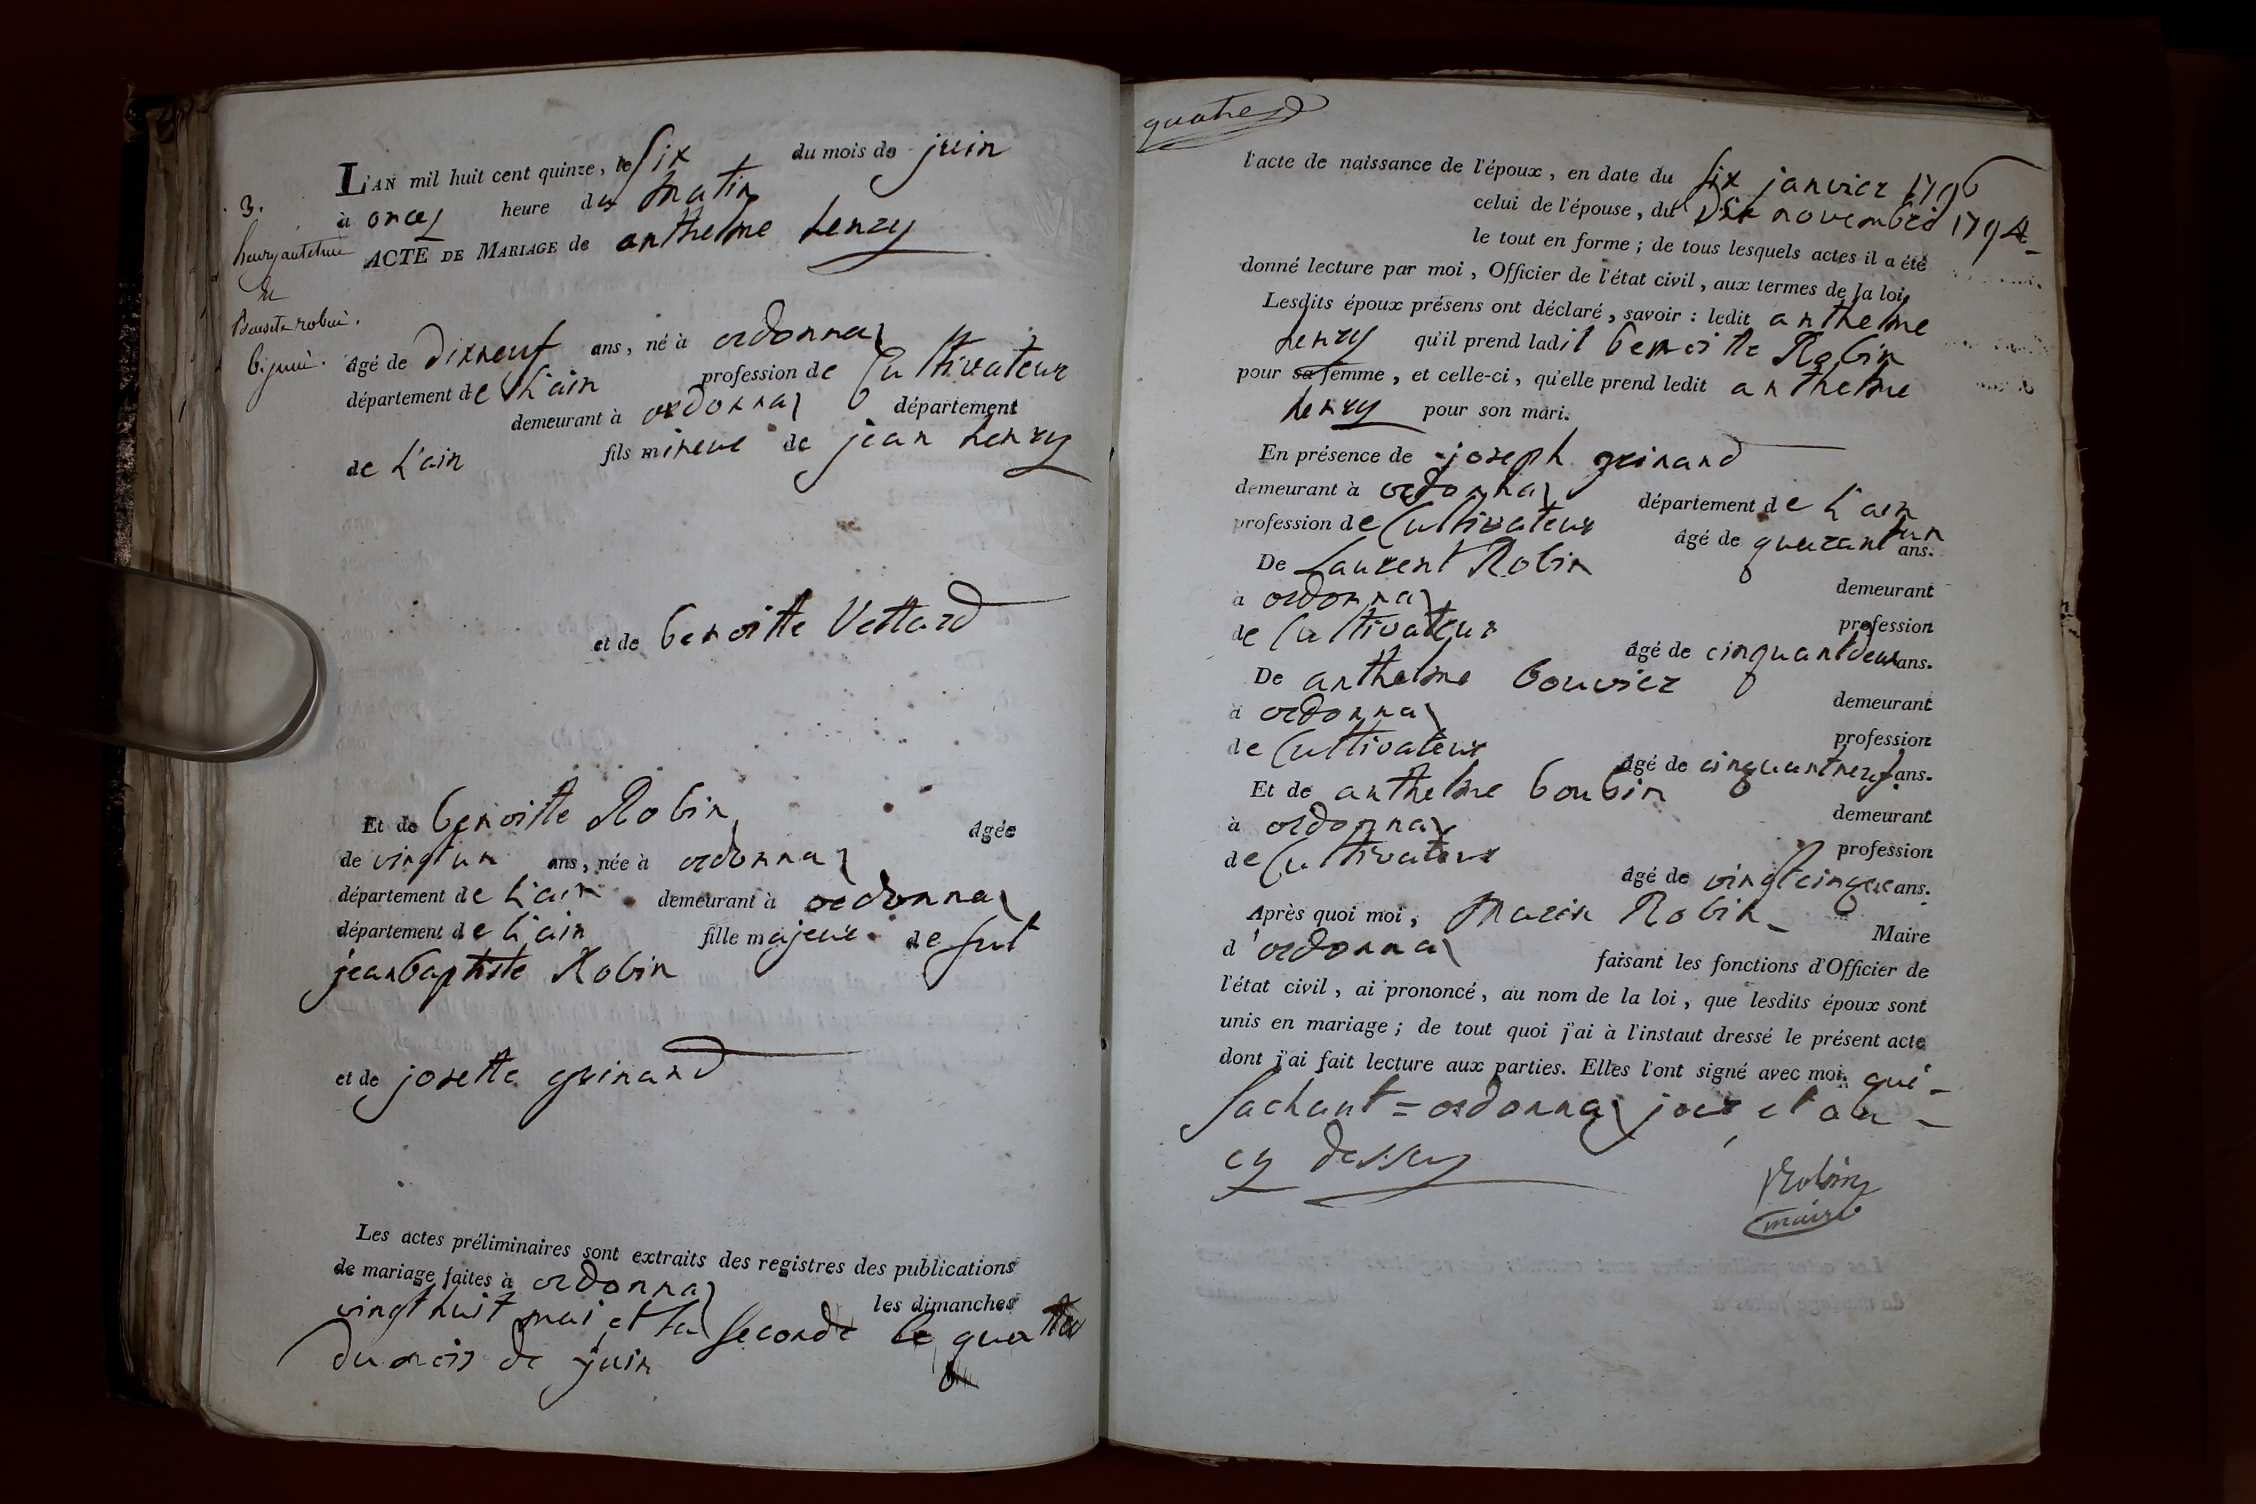 3.
henry antelme
et
Benoite robin.
6. juin.
L'AN mil huit cent quinze, le six du mois de juin
à onces heure du matin
ACTE DE MARIAGE de anthelme henry
âgé de dixneuf ans, né à ordonnas
département de L'ain profession de Cultivateur
demeurant à ordonnas département
de L'ain fils mineur de jean henry
et de benoitte Vettard
Et de benoitte Robin âgée
de vingt un ans, née à ordonnas
département de L'ain demeurant à ordonnas
département de L'ain fille majeure de fut
jeanbaptiste Robin
et de josette guinand
Les actes préliminaires sont extraits des registres des publications
de mariage faites à ordonnas les dimanches
vingt huit mai et la seconde le quattre
du mois de juin
quatre
l'acte de naissance de l'époux, en date du six janvier 1796
celui de l'épouse, du dix novembre 1794
le tout en forme; de tous lesquels actes il a été
donné lecture par moi, Officier de l'état civil, aux termes de la loi.
Lesdits époux présens ont déclaré, savoir: ledit anthelme
henry qu'il prend ladit benoitte Robin
pour sa femme, et celle-ci, qu'elle prend ledit anthelme
henry pour son mari.
En présence de joseph guinand
demeurant à ordonnas département de L'ain
profession de Cultivateur âgé de quarant un ans.
De Laurent Robin demeurant
à ordonnas profession
de Cultivateur âgé de cinquant deux ans.
De anthelme bouvier demeurant
à ordonnas profession
de Cultivateur âgé de cinquantneuf ans.
Et de anthelme boubin demeurant
à ordonnas profession
de Cultivateur âgé de vingtcinque ans.
Après quoi moi, marin Robin Maire
d'ordonnas faisant les fonctions d'Officier de
l'état civil, ai prononcé, au nom de la loi, que lesdits époux sont
unis en mariage; de tout quoi j'ai à l'instant dressé le présent acte
dont j'ai fait lecture aux parties. Elles l'ont signé avec moi, qui
sachant = ordonnas jour et an
cy dessus
Robin
maire